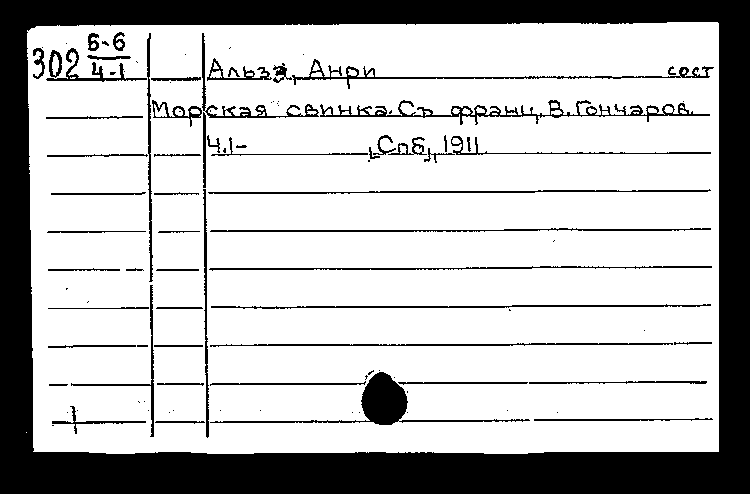 302 5-6/4-1 Альзэ, Анри сост
Морская свинка. Съ франц. В. Гончаров.
Ч.1- [Спб], 1911